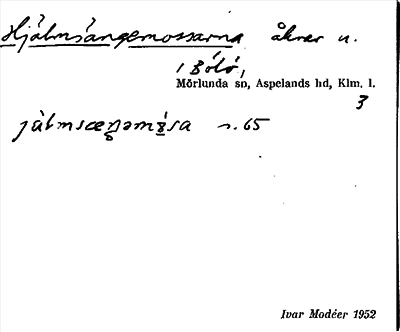 Hjälmsängemossarna åkrar u.
1 Bölö,
Mörlunda sn, Aspelands hd, Klm. l.
3
s. 65
Ivar Modéer 1952